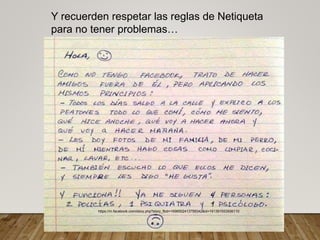 Y recuerden respetar las reglas de Netiqueta
para no tener problemas…
HOLA,
COMO NO TENGO FACEBOOK, TRATO DE HACER
AMIGOS FUERA DE ÉL, PERO APLICANDO LOS
MISMOS PRINCIPIOS:
- TODOS LOS DÍAS SALGO A LA CALLE Y EXPLICO A LOS
PEATONES TODO LO QUE COMÍ, CÓMO ME SIENTO,
QUÉ HICE ANOCHE, QUÉ VOY A HACER AHORA Y
QUÉ VOY A HACER MAÑANA.
- LES DOY FOTOS DE MI FAMILIA, DE MI PERRO,
DE MÍ MIENTRAS HAGO COSAS COMO LIMPIAR, COCI-
NAR, LAVAR, ETC...
- TAMBIÉN ESCUCHO LO QUE ELLOS ME DICEN,
Y SIEMPRE LES DIGO "ME GUSTA".
Y FUNCIONA!! YA ME SIGUEN 4 PERSONAS:
2 POLICÍAS, 1 PSIQUIATRA Y 1 PSICÓLOGO.